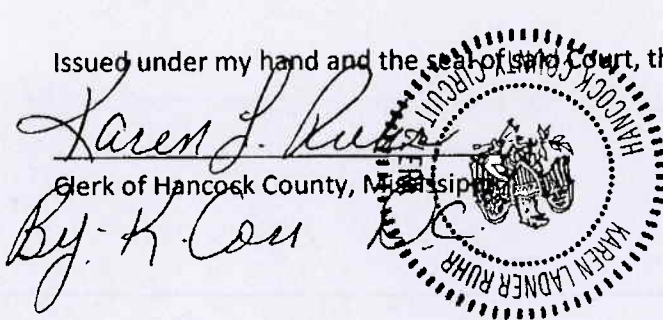 Issued under my hand and the seal of said Court, th
Karen L. Ruhr
Clerk of Hancock County, Mississippi
By: K. D.C.
HANCOCK COUNTY CIRCUIT
KAREN LADNER RUHR